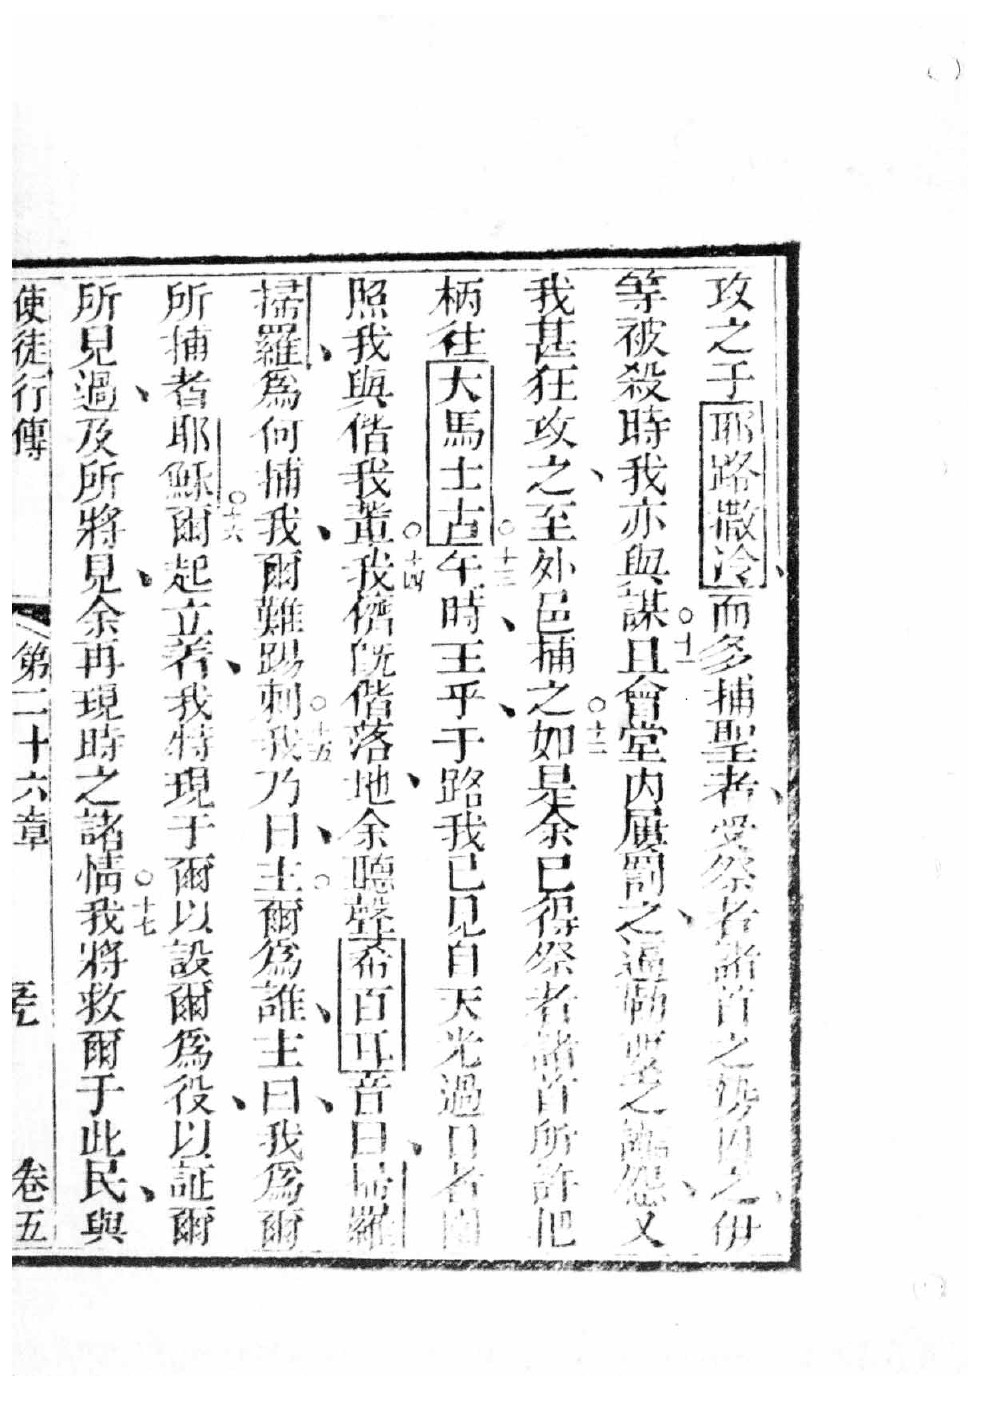 攻之于耶路撒冷、而多捕聖者、受祭者諸首之勢因之、伊
等被殺時我亦與謀○十一且會堂內屢罰之、逼勒要之訕怨、又
我甚狂攻之、至外邑捕之○十二如是余已得祭者諸首所許把
柄往大馬士古○十三午時、王乎、于路我已見自天光過日者圍
照我與偕我輩○十四我儕既偕落地、余聽聲希百耳音曰、掃羅
掃羅、爲何捕我、爾難踢刺○十五我乃曰、主○爾爲誰、主曰、我爲爾
所捕者耶穌○十六爾起立着、我特現于爾以設爾爲役、以証爾
所見過、及所將見、余再現時之諸情○十七我將救爾于此民、與
使徒行傳 第二十六章 卷五